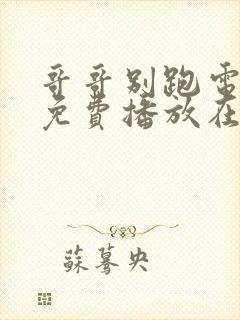 哥哥别跑电
免费播放在
苏骞央